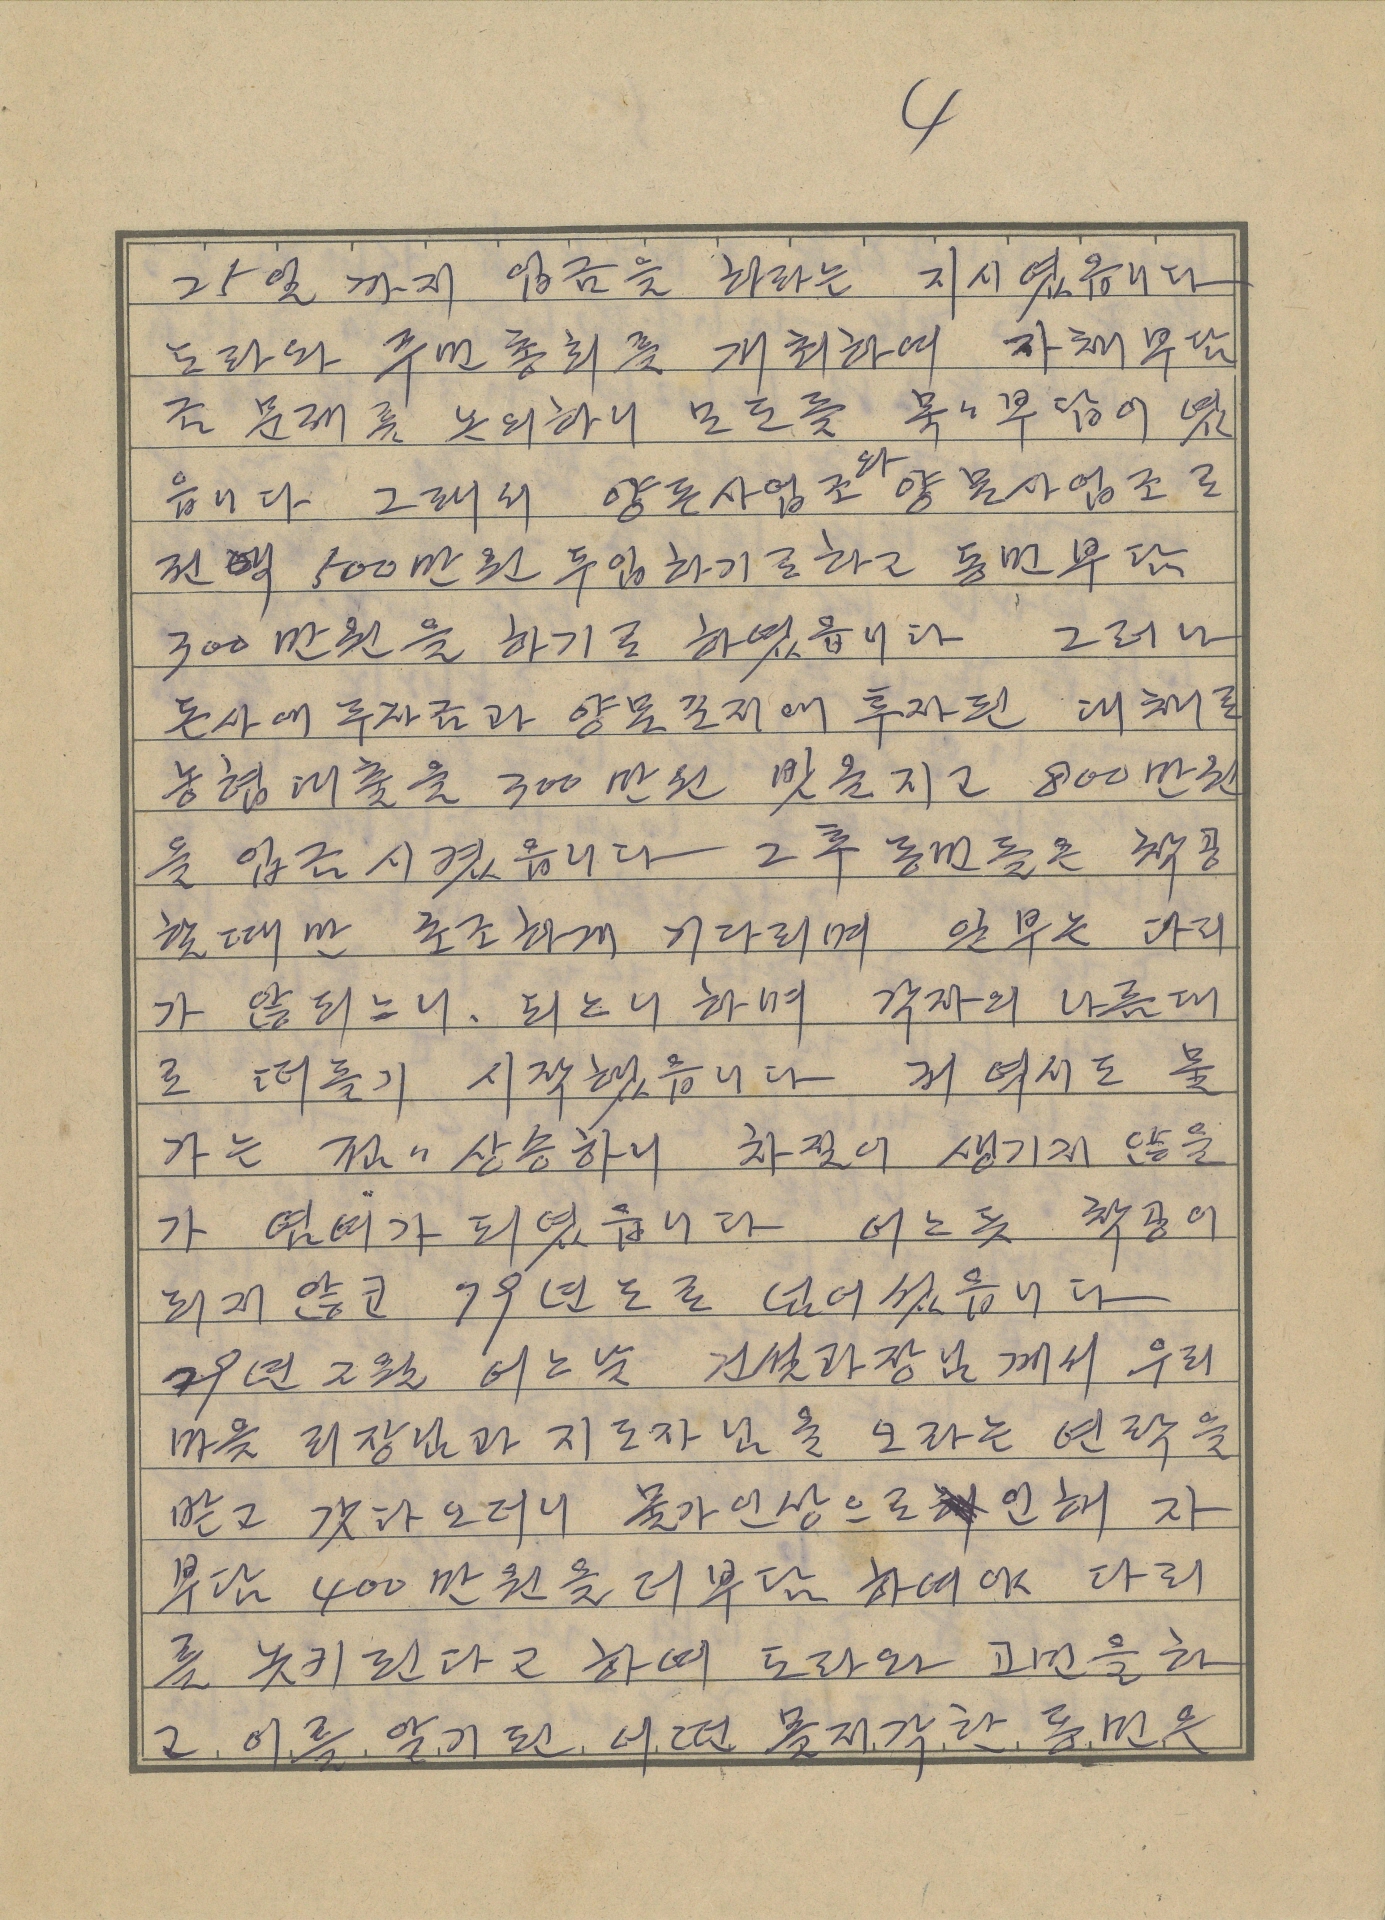 4
25일 까지 입금을 하라는 지시였읍니다
도라와 주민총회를 개최하여 자체부담
금 문제를 논의하니 모도들 묵〃부답이 였
읍니다 그래서 양돈사업조와 양묘사업조로
전액 500만원 투입하기로하고 동민부담
300만원을 하기로 하였읍니다 그러나
돈사에 투자금과 양묘포지에 투자된 대체로
농협대출을 300만원 빗을지고 800만원
을 입금시켰읍니다 그후 동민들은 착공
할때만 초조하게 기다리며 일부는 다리
가 않되느니. 되느니 하며 각자의 나름대
로 떠들기 시작했읍니다 저 역시도 물
가는 점〃 상승하니 차질이 생기지 않을
가 염여가 되였읍니다 어느듯 착공이
되지않코 79년도로 넘어섰읍니다
79년 2월 어느날 건설과장님께서 우리
마을 리장님과 지도자님을 오라는 연락을
받고 갓다오더니 물가인상으로 인해 자
부담 400만원을 더부담 하여야 다리
를 놋키된다고 하며 도라와 고민을하
고 이를 알기된 어떤 몰지각한 동민은